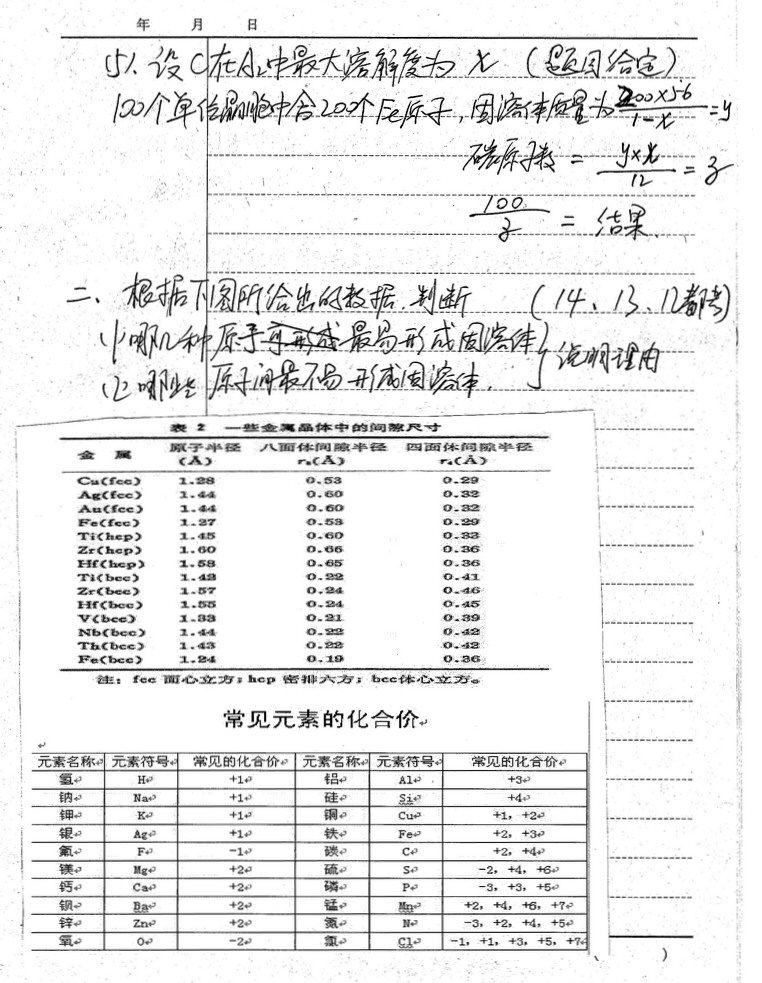 年 月 日
(5)、设C在A2中最大溶解度为 x (题图给定)
100个单位晶胞中含200个Fe原子,固溶体质量为 200×56/1-x =y
碳原子数 = y×x/12 = z
100/z = 结果.
二、根据下图所给出的数据.判断 (14、13、12都考)
(1)哪几种原子最易形成固溶体 }说明理由
(2 哪些原子间最不易形成固溶体.
表 2 一些金属晶体中的间隙尺寸
金 属 原子半径(Å) 八面体间隙半径 r₀(Å) 四面体间隙半径 r₄(Å)
Cu(fcc) 1.28 0.53 0.29
Ag(fcc) 1.44 0.60 0.32
Au(fcc) 1.44 0.60 0.32
Fe(fcc) 1.27 0.53 0.29
Ti(hcp) 1.45 0.60 0.33
Zr(hcp) 1.60 0.66 0.36
Hf(hcp) 1.58 0.65 0.36
Ti(bcc) 1.42 0.22 0.41
Zr(bcc) 1.57 0.24 0.46
Hf(bcc) 1.55 0.24 0.45
V(bcc) 1.33 0.21 0.39
Nb(bcc) 1.44 0.22 0.42
Th(bcc) 1.43 0.22 0.42
Fe(bcc) 1.24 0.19 0.36
注:fcc 面心立方;hcp 密排六方;bcc体心立方。
常见元素的化合价
元素名称 元素符号 常见的化合价 元素名称 元素符号 常见的化合价
氢 H +1 铝 Al +3
钠 Na +1 硅 Si +4
钾 K +1 铜 Cu +1, +2
银 Ag +1 铁 Fe +2, +3
氟 F -1 碳 C +2, +4
镁 Mg +2 硫 S -2, +4, +6
钙 Ca +2 磷 P -3, +3, +5
钡 Ba +2 锰 Mn +2, +4, +6, +7
锌 Zn +2 氮 N -3, +2, +4, +5
氧 O -2 氯 Cl -1, +1, +3, +5, +7
( )